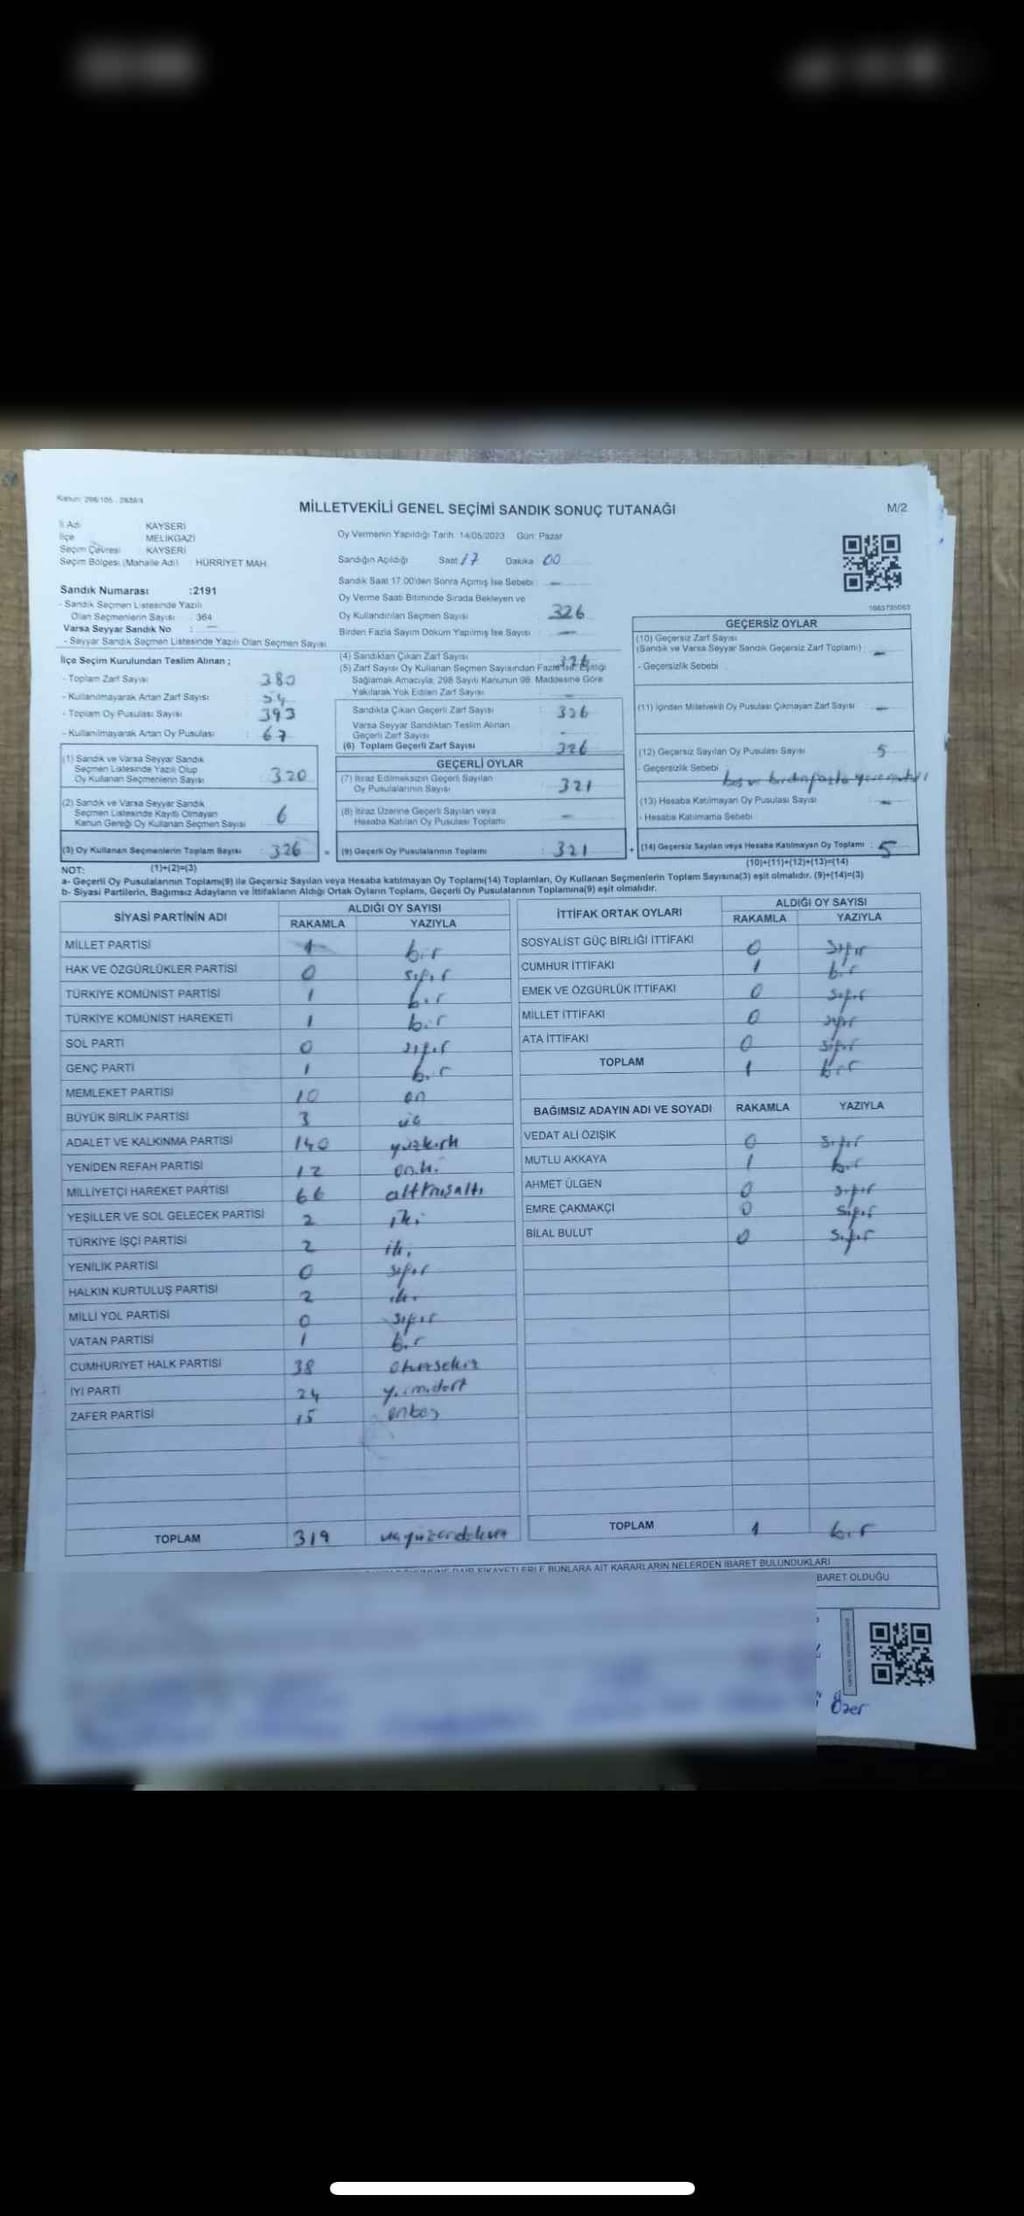 Kanun: 298/105 - 2839/4
MİLLETVEKİLİ GENEL SEÇİMİ SANDIK SONUÇ TUTANAĞI
M/2
İl Adı : KAYSERİ
İlçe : MELİKGAZİ
Seçim Çevresi : KAYSERİ
Seçim Bölgesi (Mahalle Adı) : HÜRRİYET MAH.
Oy Vermenin Yapıldığı Tarih: 14/05/2023 Gün: Pazar
Sandığın Açıldığı Saat 17 Dakika 00
Sandık Saat 17.00'den Sonra Açılmış İse Sebebi : —
Oy Verme Saati Bitiminde Sırada Bekleyen ve
Oy Kullandırılan Seçmen Sayısı : 326
Birden Fazla Sayım Döküm Yapılmış İse Sayısı : —
Sandık Numarası :2191
- Sandık Seçmen Listesinde Yazılı
Olan Seçmenlerin Sayısı : 364
Varsa Seyyar Sandık No : —
- Seyyar Sandık Seçmen Listesinde Yazılı Olan Seçmen Sayısı
İlçe Seçim Kurulundan Teslim Alınan ;
- Toplam Zarf Sayısı : 380
- Kullanılmayarak Artan Zarf Sayısı : 54
- Toplam Oy Pusulası Sayısı : 393
- Kullanılmayarak Artan Oy Pusulası : 67
(1) Sandık ve Varsa Seyyar Sandık
Seçmen Listesinde Yazılı Olup
Oy Kullanan Seçmenlerin Sayısı : 320
(2) Sandık ve Varsa Seyyar Sandık
Seçmen Listesinde Kayıtlı Olmayan
Kanun Gereği Oy Kullanan Seçmen Sayısı : 6
(3) Oy Kullanan Seçmenlerin Toplam Sayısı : 326
(1)+(2)=(3)
(4) Sandıktan Çıkan Zarf Sayısı : 326
(5) Zarf Sayısı Oy Kullanan Seçmen Sayısından Fazla İse, Eşitliği
Sağlamak Amacıyla, 298 Sayılı Kanunun 98. Maddesine Göre
Yakılarak Yok Edilen Zarf Sayısı : —
Sandıkta Çıkan Geçerli Zarf Sayısı : 326
Varsa Seyyar Sandıktan Teslim Alınan
Geçerli Zarf Sayısı : -
(6) Toplam Geçerli Zarf Sayısı : 326
GEÇERLİ OYLAR
(7) İtiraz Edilmeksizin Geçerli Sayılan
Oy Pusulalarının Sayısı : 321
(8) İtiraz Üzerine Geçerli Sayılan veya
Hesaba Katılan Oy Pusulası Toplamı : —
= (9) Geçerli Oy Pusulalarının Toplamı : 321
1063795063
GEÇERSİZ OYLAR
(10) Geçersiz Zarf Sayısı
(Sandık ve Varsa Seyyar Sandık Geçersiz Zarf Toplamı) : —
- Geçersizlik Sebebi :
(11) İçinden Milletvekili Oy Pusulası Çıkmayan Zarf Sayısı : —
(12) Geçersiz Sayılan Oy Pusulası Sayısı : 5
- Geçersizlik Sebebi : boş ve birden fazla
(13) Hesaba Katılmayan Oy Pusulası Sayısı : —
- Hesaba Katılmama Sebebi
+ (14) Geçersiz Sayılan veya Hesaba Katılmayan Oy Toplamı : 5
(10)+(11)+(12)+(13)=(14)
NOT:
a- Geçerli Oy Pusulalarının Toplamı(9) ile Geçersiz Sayılan veya Hesaba katılmayan Oy Toplamı(14) Toplamları, Oy Kullanan Seçmenlerin Toplam Sayısına(3) eşit olmalıdır. (9)+(14)=(3)
b- Siyasi Partilerin, Bağımsız Adayların ve İttifakların Aldığı Ortak Oyların Toplamı, Geçerli Oy Pusulalarının Toplamına(9) eşit olmalıdır.
SİYASİ PARTİNİN ADI ALDIĞI OY SAYISI
RAKAMLA YAZIYLA
MİLLET PARTİSİ 1 bir
HAK VE ÖZGÜRLÜKLER PARTİSİ 0 sıfır
TÜRKİYE KOMÜNİST PARTİSİ 1 bir
TÜRKİYE KOMÜNİST HAREKETİ 1 bir
SOL PARTİ 0 sıfır
GENÇ PARTİ 1 bir
MEMLEKET PARTİSİ 10 on
BÜYÜK BİRLİK PARTİSİ 3 üç
ADALET VE KALKINMA PARTİSİ 140 yüzkırk
YENİDEN REFAH PARTİSİ 12 oniki
MİLLİYETÇİ HAREKET PARTİSİ 66 altmışaltı
YEŞİLLER VE SOL GELECEK PARTİSİ 2 iki
TÜRKİYE İŞÇİ PARTİSİ 2 iki
YENİLİK PARTİSİ 0 sıfır
HALKIN KURTULUŞ PARTİSİ 2 iki
MİLLİ YOL PARTİSİ 0 sıfır
VATAN PARTİSİ 1 bir
CUMHURİYET HALK PARTİSİ 38 otuzsekiz
İYİ PARTİ 24 yirmidört
ZAFER PARTİSİ 15 onbeş
TOPLAM 319 üçyüzondokuz
İTTİFAK ORTAK OYLARI ALDIĞI OY SAYISI
RAKAMLA YAZIYLA
SOSYALİST GÜÇ BİRLİĞİ İTTİFAKI 0 sıfır
CUMHUR İTTİFAKI 1 bir
EMEK VE ÖZGÜRLÜK İTTİFAKI 0 sıfır
MİLLET İTTİFAKI 0 sıfır
ATA İTTİFAKI 0 sıfır
TOPLAM 1 bir
BAĞIMSIZ ADAYIN ADI VE SOYADI RAKAMLA YAZIYLA
VEDAT ALİ ÖZIŞIK 0 sıfır
MUTLU AKKAYA 1 bir
AHMET ÜLGEN 0 sıfır
EMRE ÇAKMAKÇİ 0 sıfır
BİLAL BULUT 0 sıfır
TOPLAM 1 bir
ŞİKAYETLERLE BUNLARA AİT KARARLARIN NELERDEN İBARET BULUNDUKLARI
BARET OLDUĞU
Özer